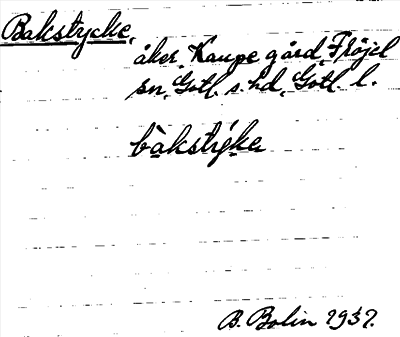 Bakstycke,
åker, Kaupe gård, Fröjel
sn, Gotl. s. hd, Gotl. l.
bàkstýke
B. Bolin 1937.